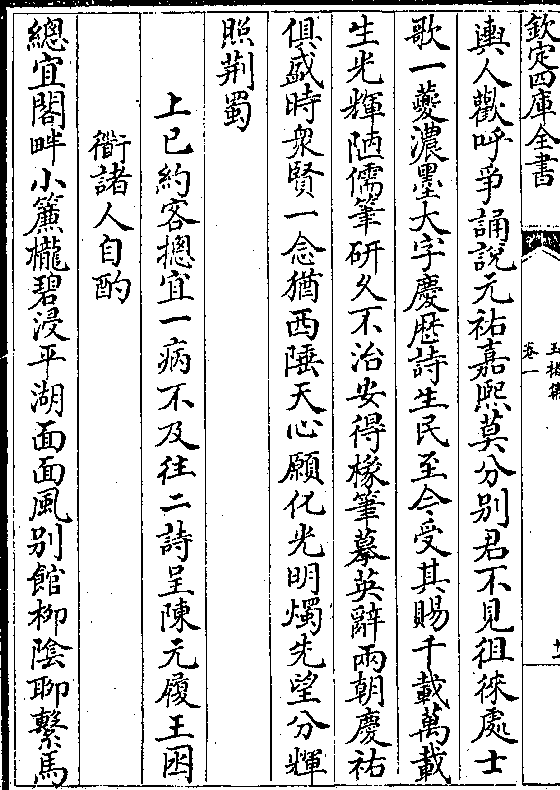 欽定四庫全書
卷一
輿人歡呼爭誦說元祐嘉熙莫分別君不見徂徠處士
歌一䕫濃墨大字慶歴詩生民至今受其賜千載萬載
生光輝陋儒筆研久不治安得椽筆摹英辭兩朝慶祐
俱盛時衆賢一念猶西陲天心願化光明燭先望分輝
照荆蜀
上已約客摠宜一病不及往二詩呈陳元履王困
衜諸人自酌
總宜閣畔小簾櫳碧浸平湖面面風别館柳陰聊繫馬